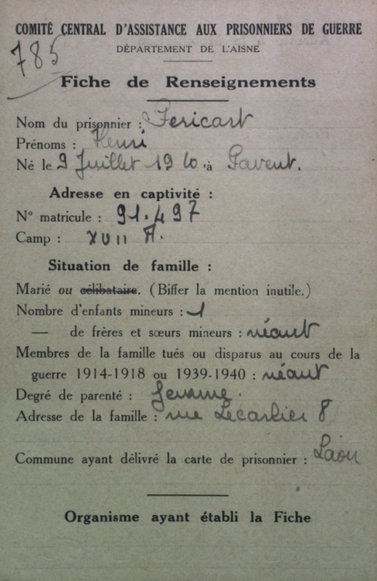 COMITÉ CENTRAL D'ASSISTANCE AUX PRISONNIERS DE GUERRE
DÉPARTEMENT DE L'AISNE
785
Fiche de Renseignements
Nom du prisonnier : Pericart
Prénoms : Henri
Né le 9 Juillet 1910 à
Adresse en captivité :
N° matricule : 91.497
Camp : XVII A.
Situation de famille :
Marié ou célibataire. (Biffer la mention inutile.)
Nombre d'enfants mineurs : 1
— de frères et sœurs mineurs : néant
Membres de la famille tués ou disparus au cours de la
guerre 1914-1918 ou 1939-1940 : néant
Degré de parenté : femme.
Adresse de la famille : rue Lecarlier 8
Commune ayant délivré la carte de prisonnier : Laon
Organisme ayant établi la Fiche